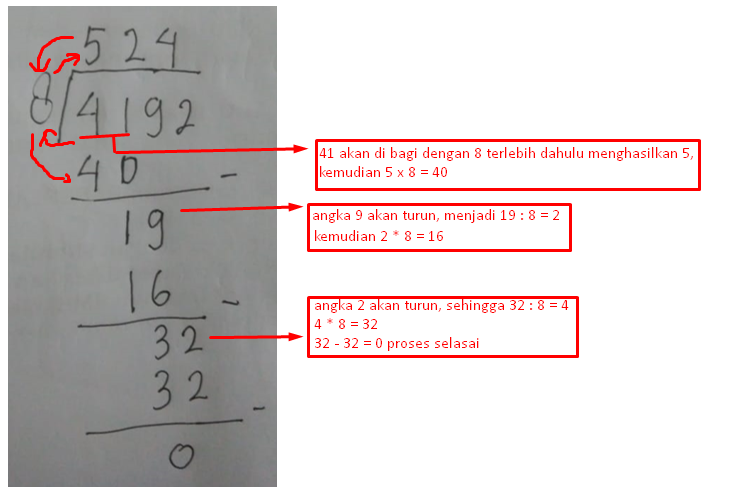 524
8 4192
40 -
41 akan di bagi dengan 8 terlebih dahulu menghasilkan 5,
kemudian 5 x 8 = 40
19
angka 9 akan turun, menjadi 19 : 8 = 2
kemudian 2 * 8 = 16
16 -
32
angka 2 akan turun, sehingga 32 : 8 = 4
4 * 8 = 32
32 - 32 = 0 proses selasai
32 -
0